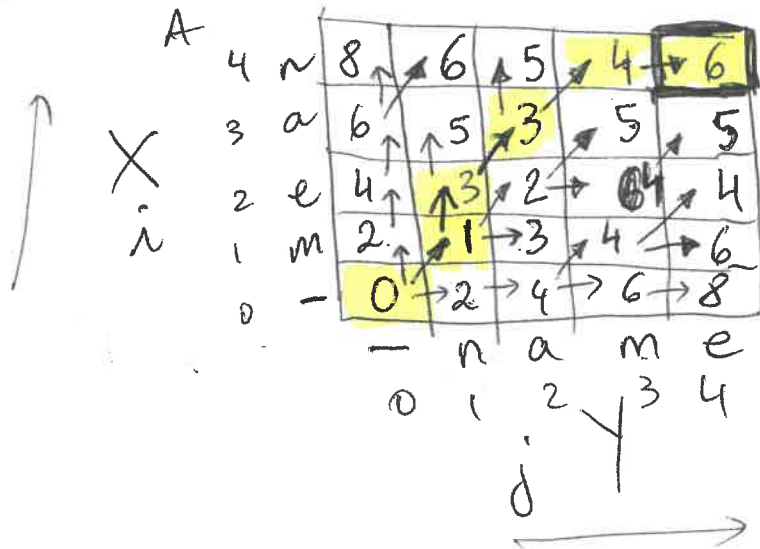 A
4 n 8 6 5 4 6
X 3 a 6 5 3 5 5
2 e 4 3 2 4 4
i 1 m 2 1 3 4 6
0 – 0 2 4 6 8
– n a m e
0 1 2 3 4
j Y